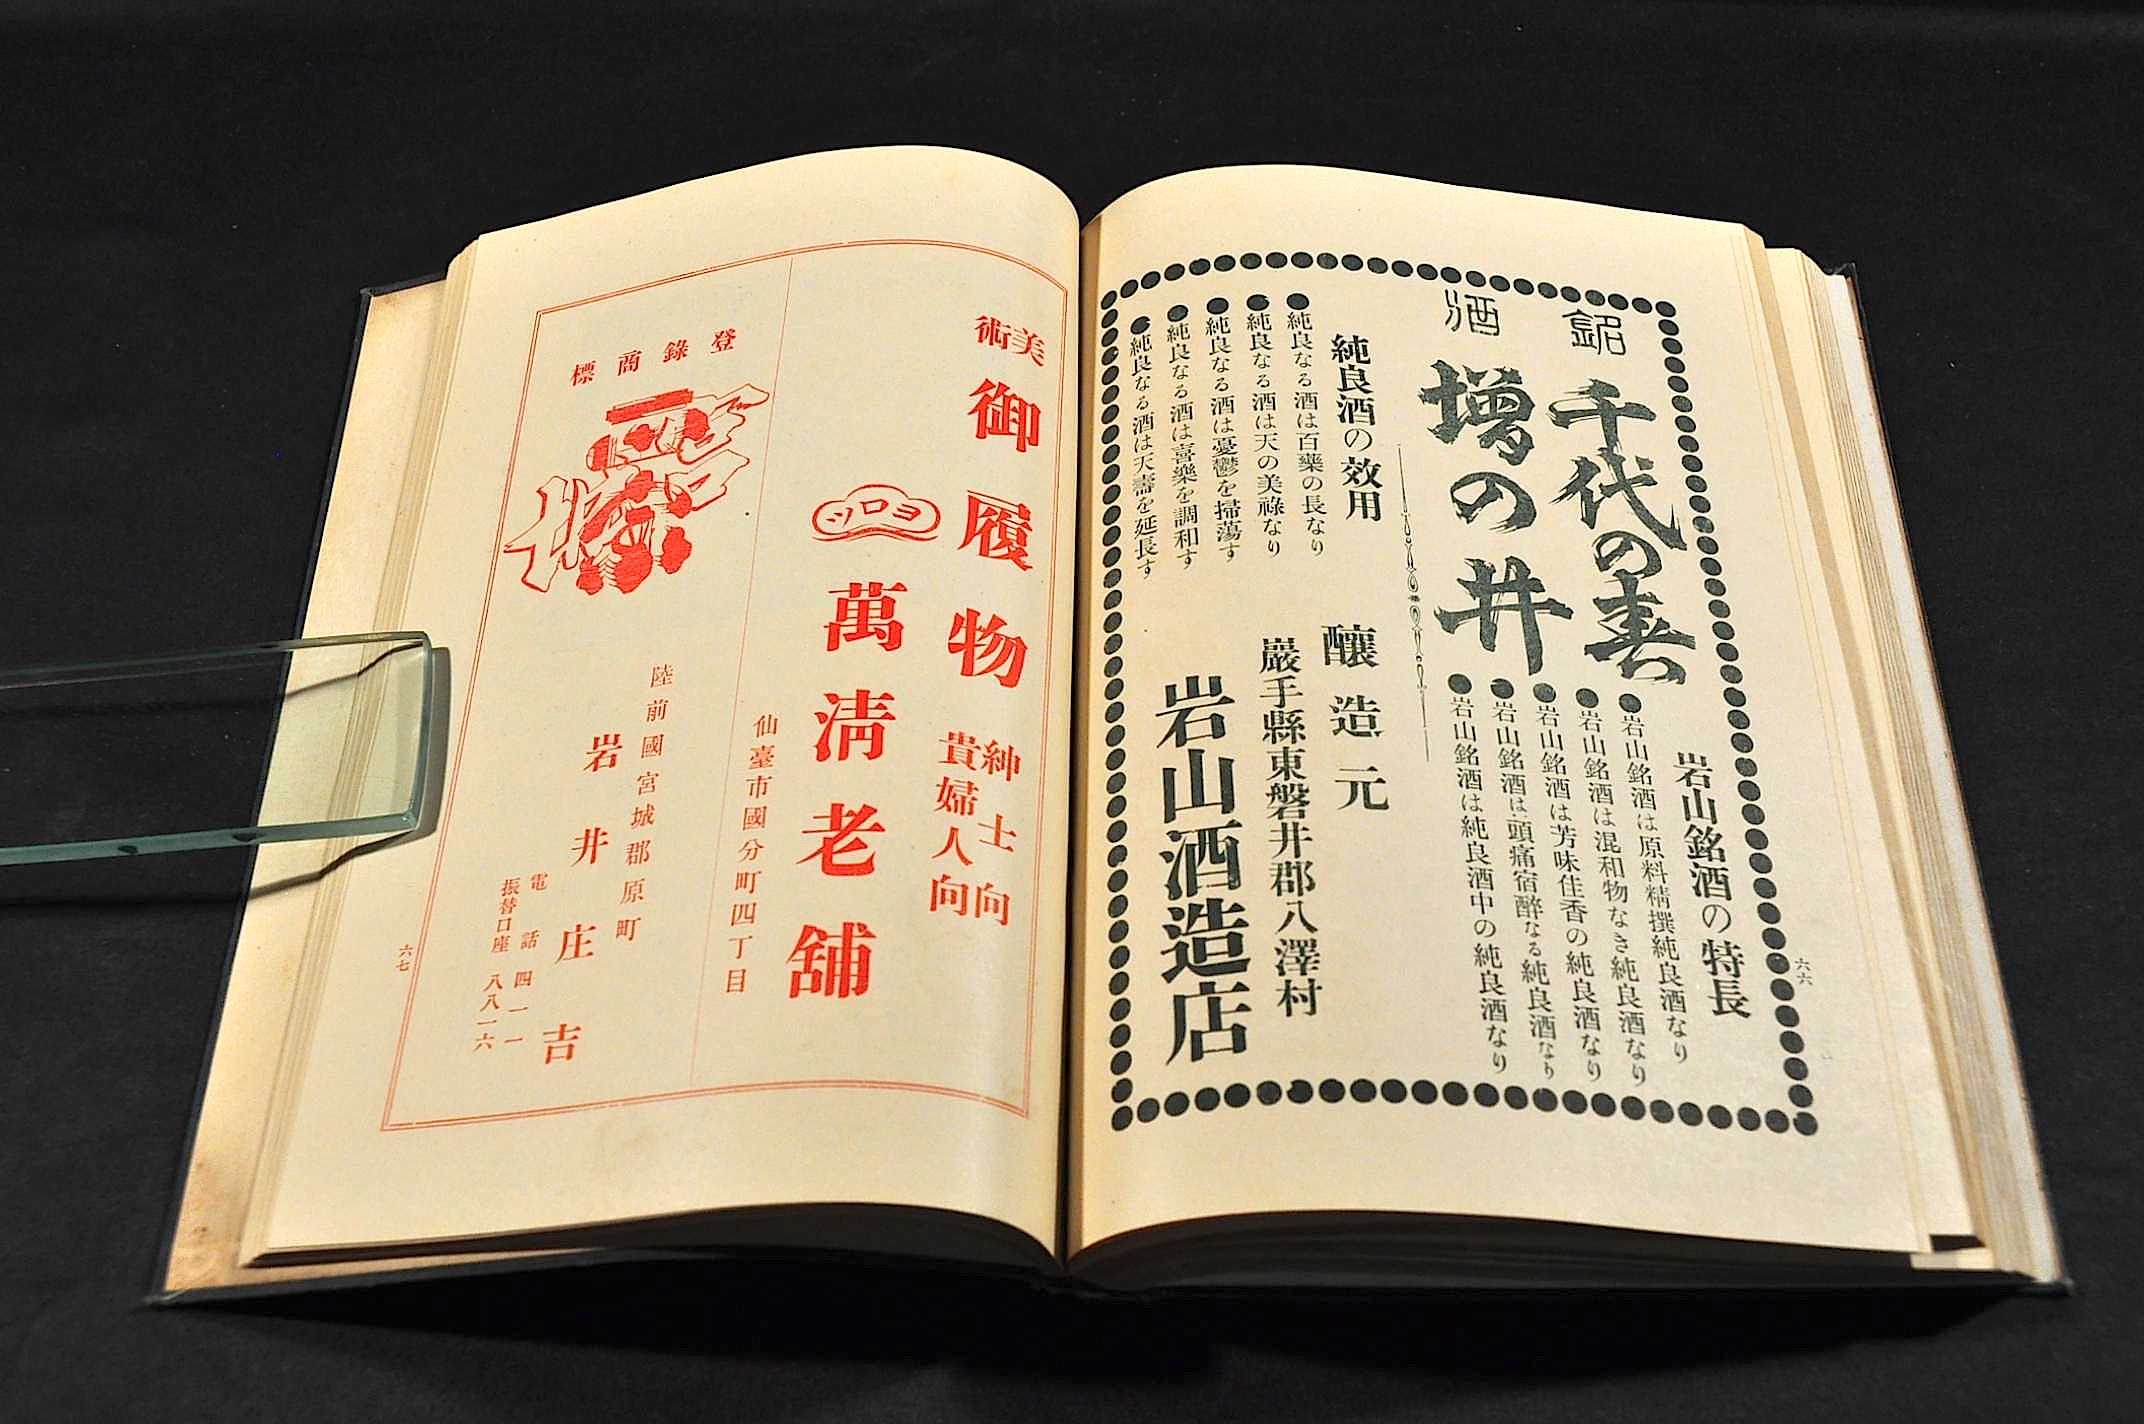 銘酒
千代の春
増の井
岩山銘酒の特長
●岩山銘酒は原料精撰純良酒なり
●岩山銘酒は混和物なき純良酒なり
●岩山銘酒は芳味佳香の純良酒なり
●岩山銘酒は頭痛宿醉なる純良酒なり
●岩山銘酒は純良酒中の純良酒なり
純良酒の效用
●純良なる酒は百藥の長なり
●純良なる酒は天の美祿なり
●純良なる酒は憂鬱を掃蕩す
●純良なる酒は喜樂を調和す
●純良なる酒は天壽を延長す
釀造元
巖手縣東磐井郡八澤村
岩山酒造店
六六
美術
御履物
紳士向
貴婦人向
ヨロヅ
萬淸老舖
仙臺市國分町四丁目
登錄商標
陸前國宮城郡原町
岩井庄吉
電話四一一
振替口座八八一六
六七